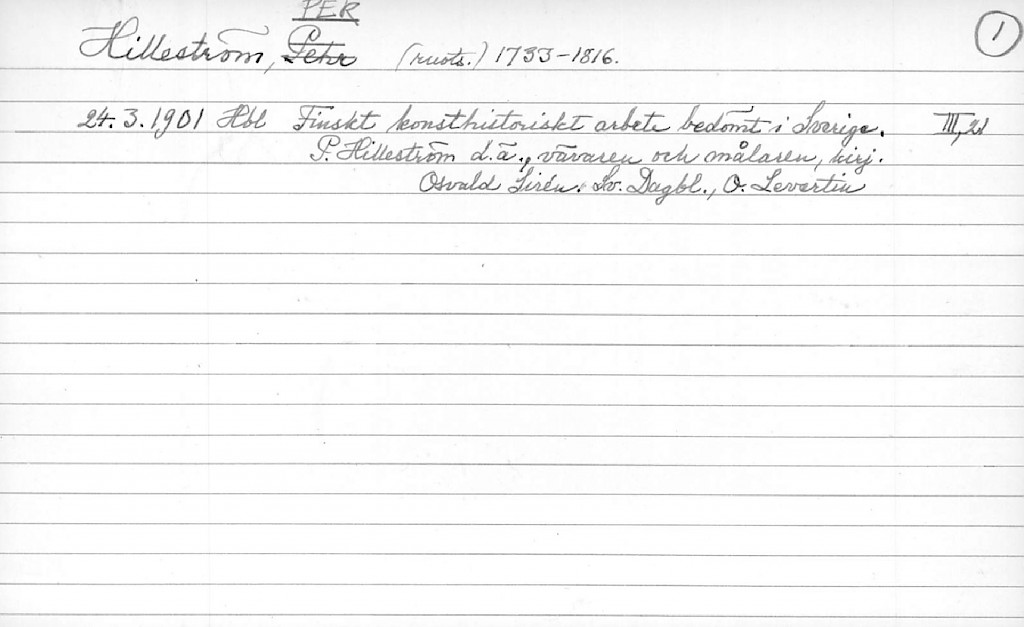 PER
①
Hilleström, Pehr (ruots.) 1733-1816.
24.3.1901 Hbl Finskt konsthistoriskt arbete bedömt i Sverige. III,21
P. Hilleström d.ä., vävaren och målaren, kirj.
Osvald Sirén. Sv. Dagbl., O. Levertin